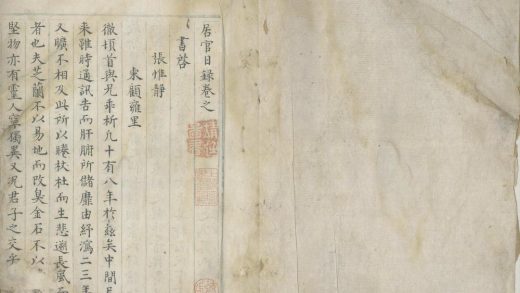 居官日錄卷之
書啓
張惟靜
柬顧雍里
徽頓首與兄乖析凡十有八年於茲矣中間
來雖時通訊告而肝腑所儲靡由紓瀉二三年
又曠不相及此所以睠杕杜而生悲遡長風而
者也夫芝蘭不以易地而改臭金石不以
堅物亦有靈人寧獨異又況君子之交乎